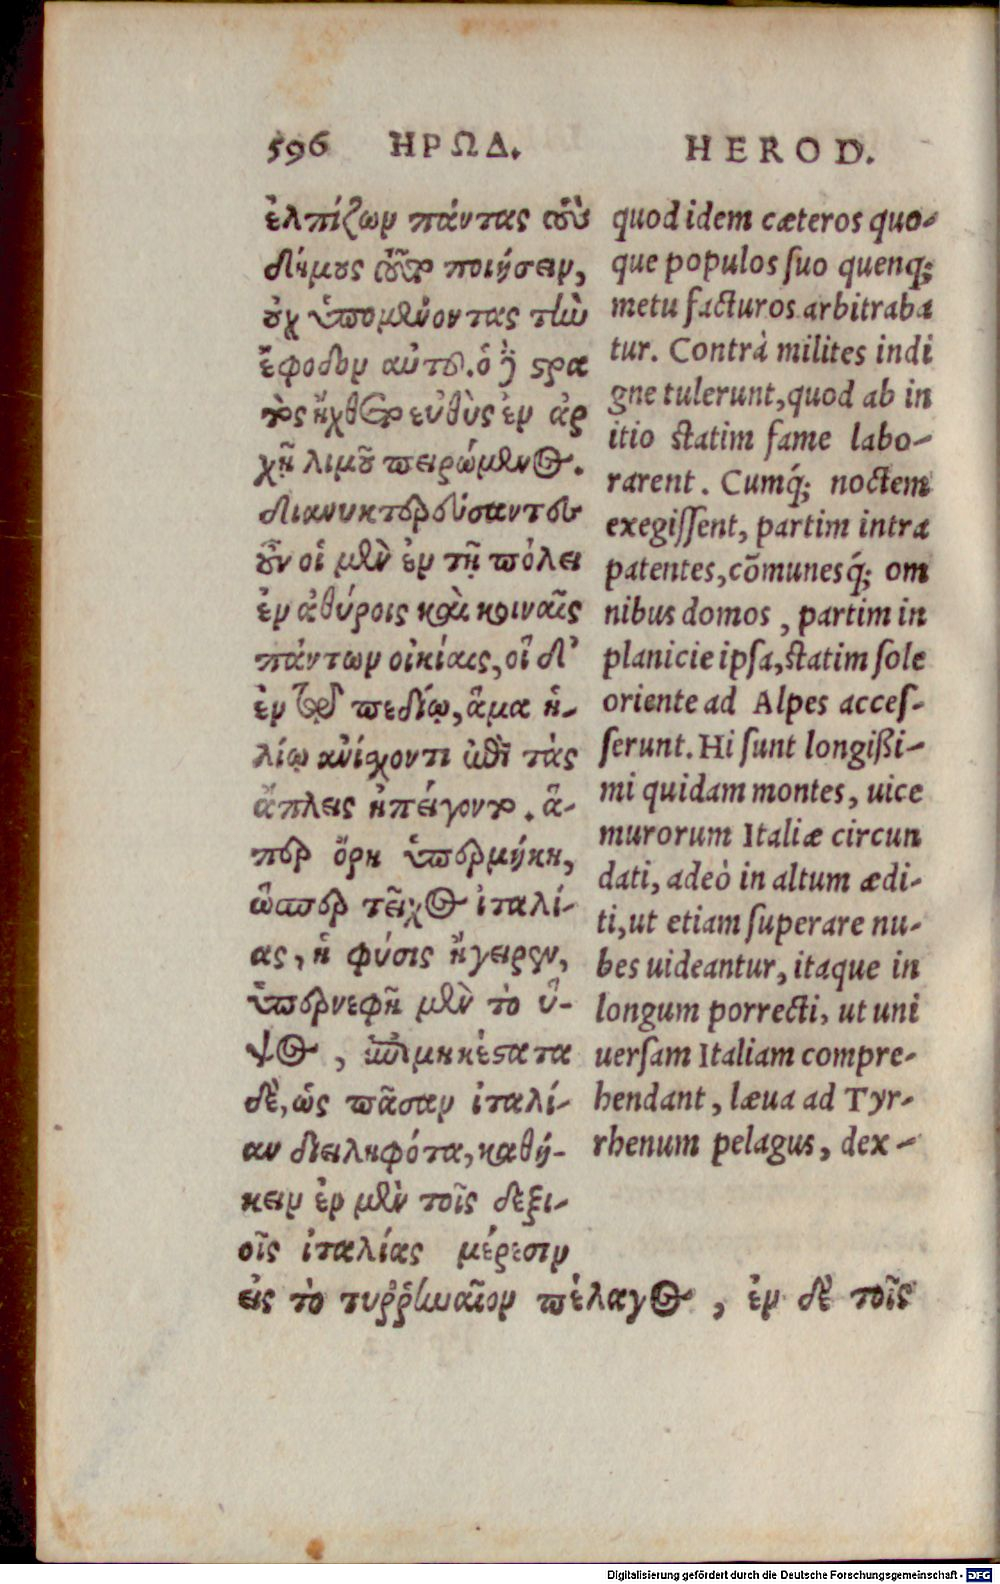 596 ΗΡΩΔ.
ἐλπίζων πάντας τοὺς
δήμους τοῦτο ποιήσειν,
οὐχ ὑπομένοντας τὴν
ἔφοδον αὐτοῦ. ὁ δὲ στρα
τὸς ἤχθετο εὐθὺς ἐν ἀρ
χῇ λιμοῦ πειρώμενος.
διανυκτερεύσαντες
οὖν οἱ μὲν ἐν τῇ πόλει
ἐν ἀθύροις καὶ κοιναῖς
πάντων οἰκίαις, οἱ δ'
ἐν τῷ πεδίῳ, ἅμα ἡ-
λίῳ ἀνίχοντι ἐπὶ τὰς
ἄπλεις ἠπείγοντο. ἅ-
περ ὄρη ὑπερμήκη,
ὥσπερ τεῖχος ἰταλί-
ας, ἡ φύσις ἤγειρεν,
ὑπερνεφῆ μὲν τὸ ὕ-
ψος, ἐπιμηκέστατα
δὲ, ὡς πᾶσαν ἰταλί-
αν διειληφότα, καθή-
κειν ἐν μὲν τοῖς δεξι-
οῖς ἰταλίας μέρεσιν
εἰς τὸ τυῤῥηναῖον πέλαγος, ἐν δὲ τοῖς
HEROD.
quod idem cæteros quo-
que populos suo quenq;
metu facturos arbitraba
tur. Contrà milites indi
gne tulerunt, quod ab in
itio statim fame labo-
rarent. Cumq́; noctem
exegissent, partim intra
patentes, cõmunesq́; om
nibus domos, partim in
planicie ipsa, statim sole
oriente ad Alpes acces-
serunt. Hi sunt longißi-
mi quidam montes, uice
murorum Italiæ circun
dati, adeò in altum ædi-
ti, ut etiam superare nu-
bes uideantur, itaque in
longum porrecti, ut uni
uersam Italiam compre-
hendant, læua ad Tyr-
rhenum pelagus, dex-
Digitalisierung gefördert durch die Deutsche Forschungsgemeinschaft - DFG